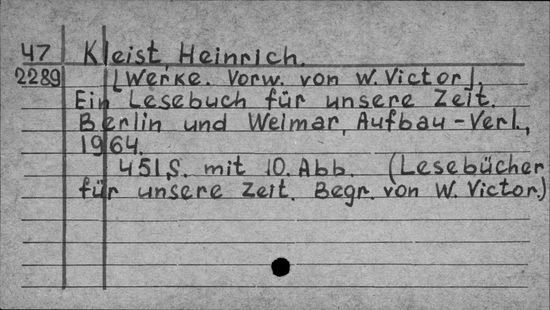 47 Kleist, Heinrich.
2289 [Werke. Vorw. von W. Victor].
Ein Lesebuch für unsere Zeit.
Berlin und Weimar, Aufbau-Verl.,
1964.
451 S. mit 10. Abb. (Lesebücher
für unsere Zeit. Begr. von W. Victor.)